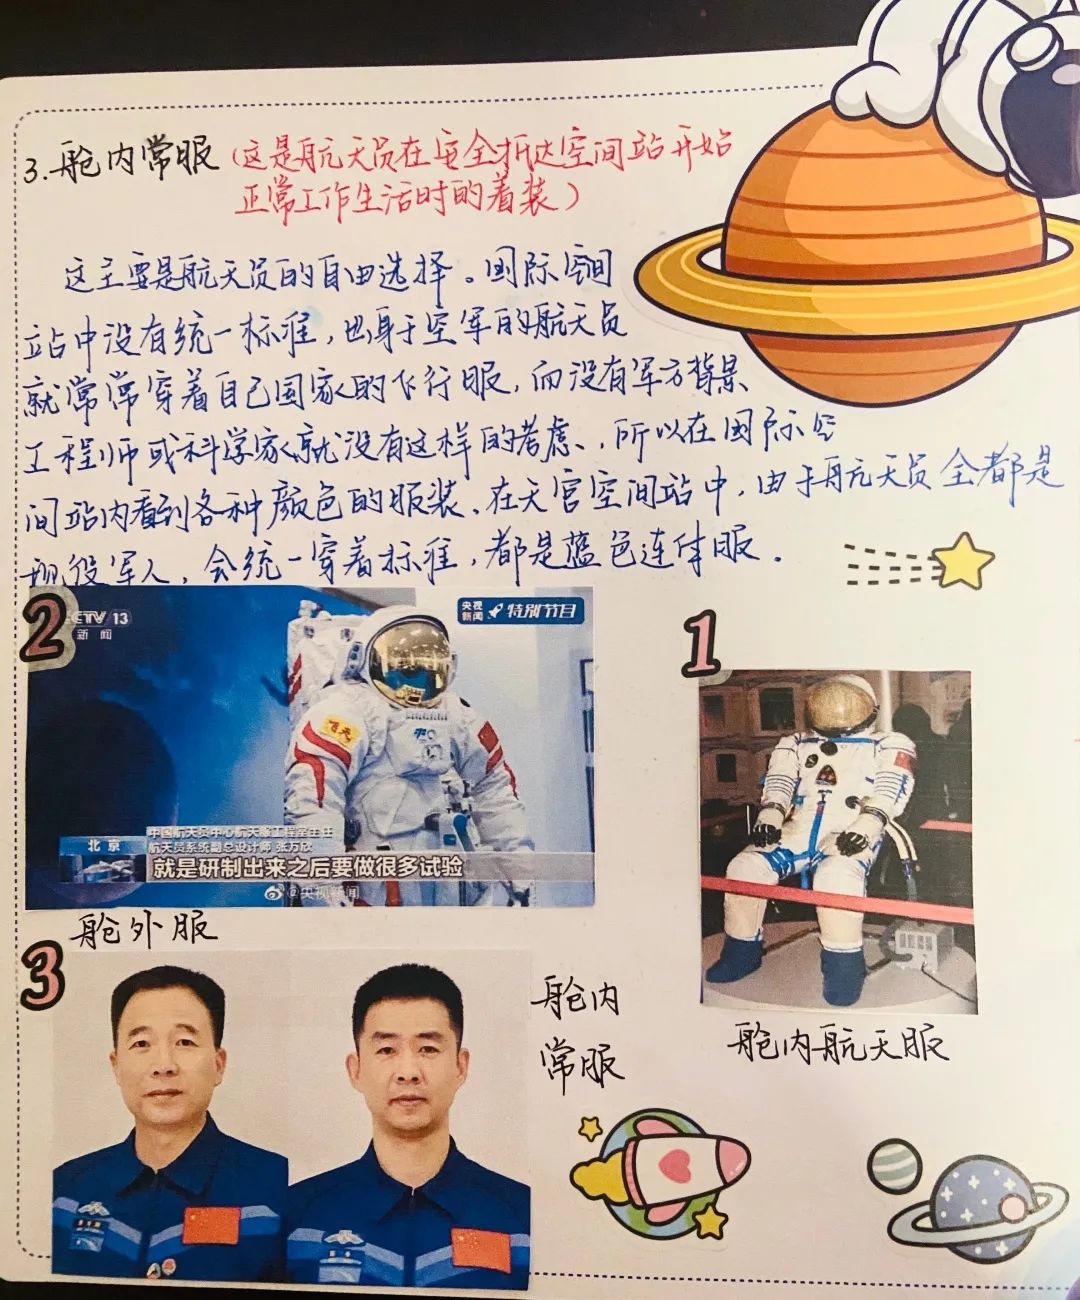 3.舱内常服（这是航天员在安全抵达空间站开始
正常工作生活时的着装）
这主要是航天员的自由选择。国际空间
站中没有统一标准，出身于空军的航天员
就常常穿着自己国家的飞行服，而没有军方背景
工程师或科学家就没有这样的考虑、所以在国际空
间站内看到各种颜色的服装、在天宫空间站中，由于航天员全都是
现役军人，会统一穿着标准，都是蓝色连体服．
2
CCTV 13
新闻
央视
新闻
特别节目
飞天
北京
中国航天员中心航天服工程室主任
航天员系统副总设计师 张万欣
就是研制出来之后要做很多试验
@央视新闻
舱外服
1
舱内航天服
3
舱内
常服